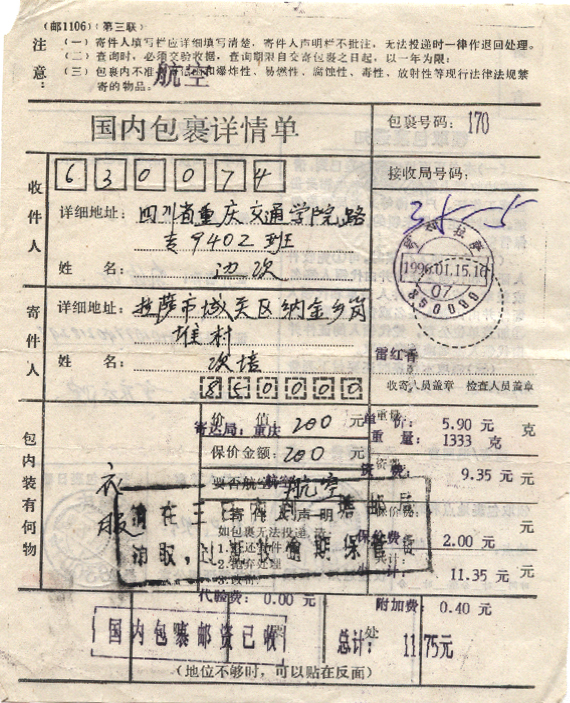 (邮1106)(第三联)
注意：
(一) 寄件人填写栏应详细填写清楚，寄件人声明栏不批注，无法投递时一律作退回处理。
(二) 查询时，必须交验收据，查询期限自交寄包裹之日起，以一年为限；
(三) 包裹内不准 和爆炸性、易燃性、腐蚀性、毒性、放射性等现行法律法规禁
寄的物品。
航空
国内包裹详情单
包裹号码：170
收件人
630074
接收局号码：
35-5
详细地址：四川省重庆交通学院路
专9402班
姓 名：边次
拉萨
1996.01.15.16
07
850000
寄件人
详细地址：拉萨市城关区纳金乡岗
堆村
姓 名：次培
雷红香
850000
收寄人员盖章 检查人员盖章
包内装有何物
衣服
价 值 200 元
寄达局：重庆
单 价：5.90 元
重量：
克
重 量：1333 克
保价金额：200 元
资 费：9.35 元
元
要否航空 航空
寄件人声明
如包裹无法投递，
1.退还寄件
2.抛弃处理
3.改寄
保 费 2.00 元
元
计：11.35 元
元
请在三日内到
领取，过 收逾期保管费
代验费：0.00 元
附加费：0.40 元
国内包裹邮资已收
总计： 11.75元
(地位不够时，可以贴在反面)